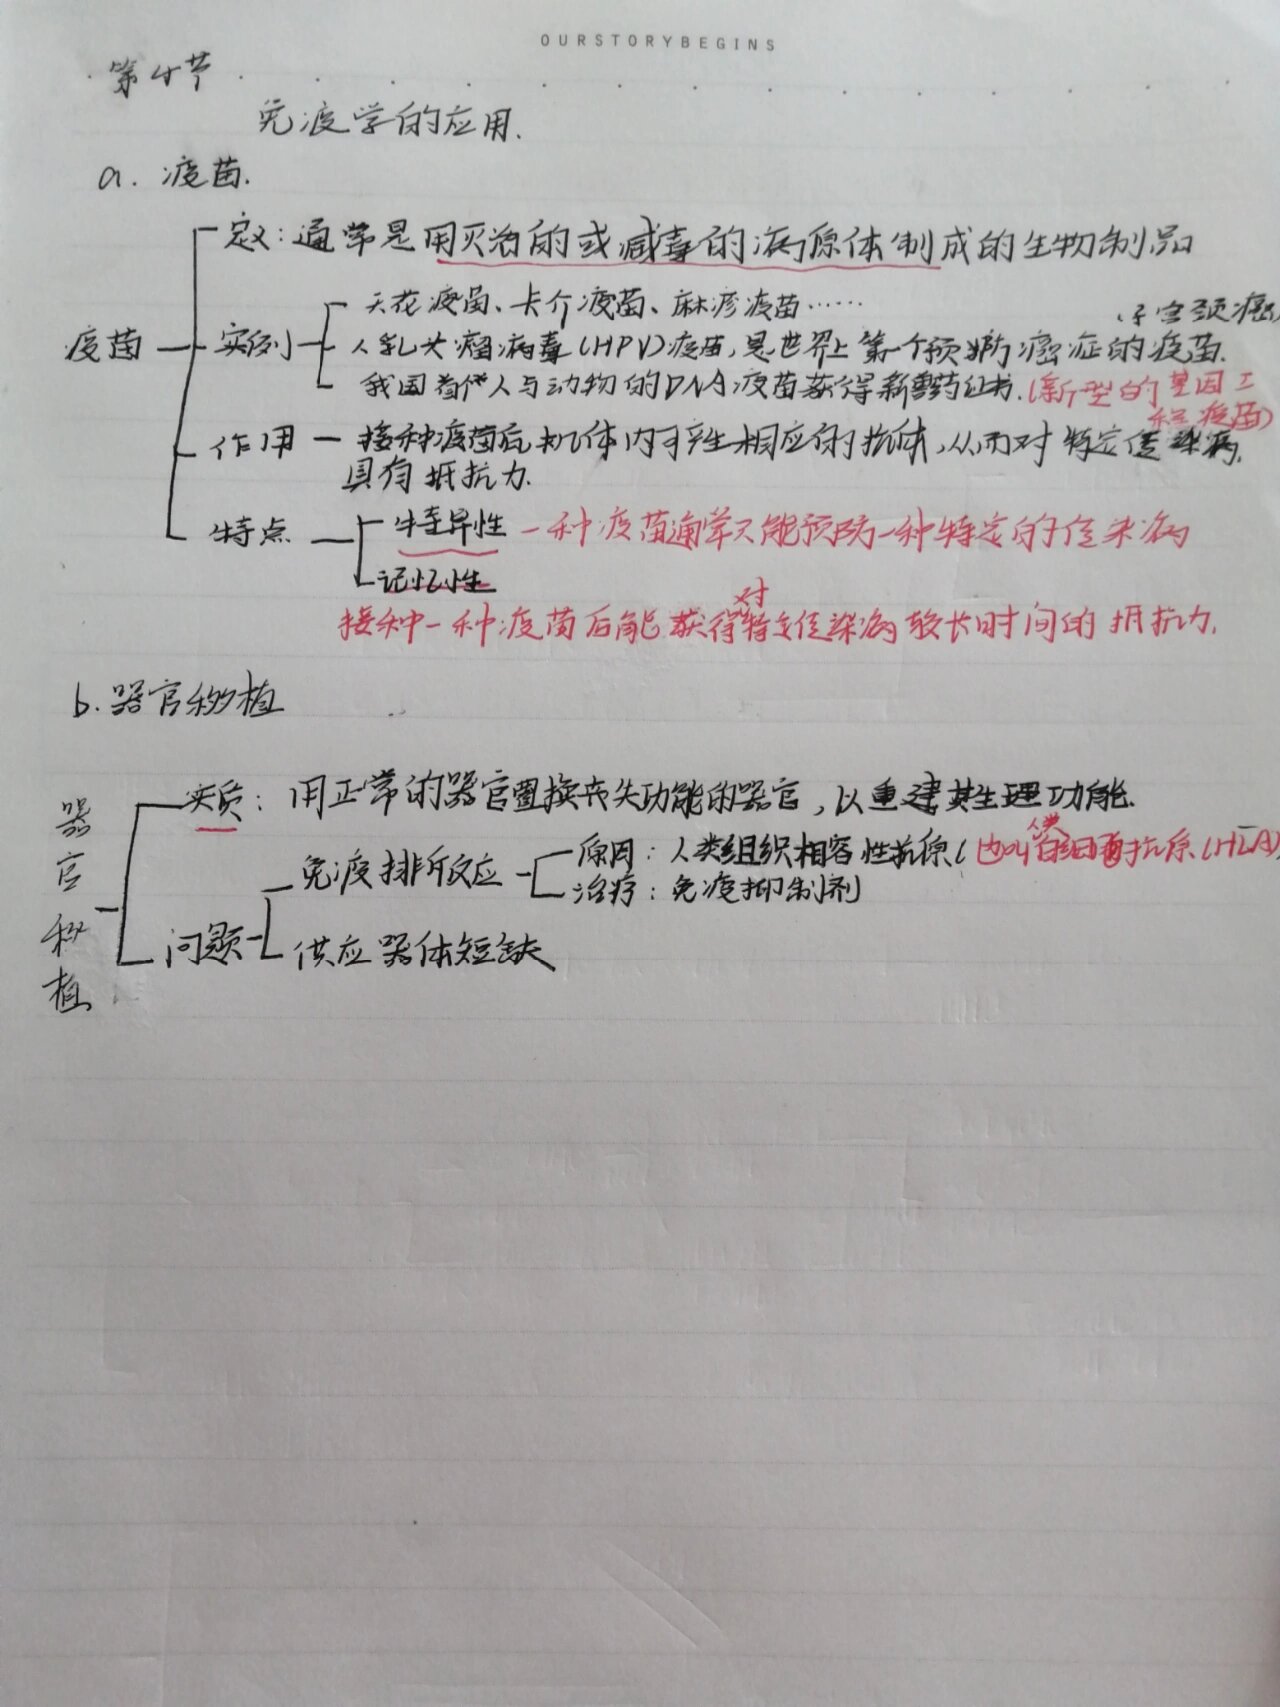 OURSTORYBEGINS
第4节
免疫学的应用.
a. 疫苗.
定义: 通常是用灭活的或减毒的病原体制成的生物制品
天花疫苗、卡介疫苗、麻疹疫苗……
(子宫颈癌)
疫苗 实例 人乳头瘤病毒(HPV)疫苗, 是世界上第一个预防癌症的疫苗.
我国首例人与动物的DNA疫苗获得新兽药证书. (新型的基因工
程疫苗)
作用 — 接种疫苗后, 机体内可产生相应的抗体, 从而对特定传染病
具有抵抗力.
特点 特异性 一种疫苗通常只能预防一种特定的传染病
记忆性
对
接种一种疫苗后能获得特定传染病较长时间的抵抗力.
b. 器官移植
器官移植 实质: 用正常的器官置换丧失功能的器官, 以重建其生理功能.
人类
免疫排斥反应 原因: 人类组织相容性抗原( 也叫白细胞抗原(HLA)
治疗: 免疫抑制剂
问题 供应器体短缺